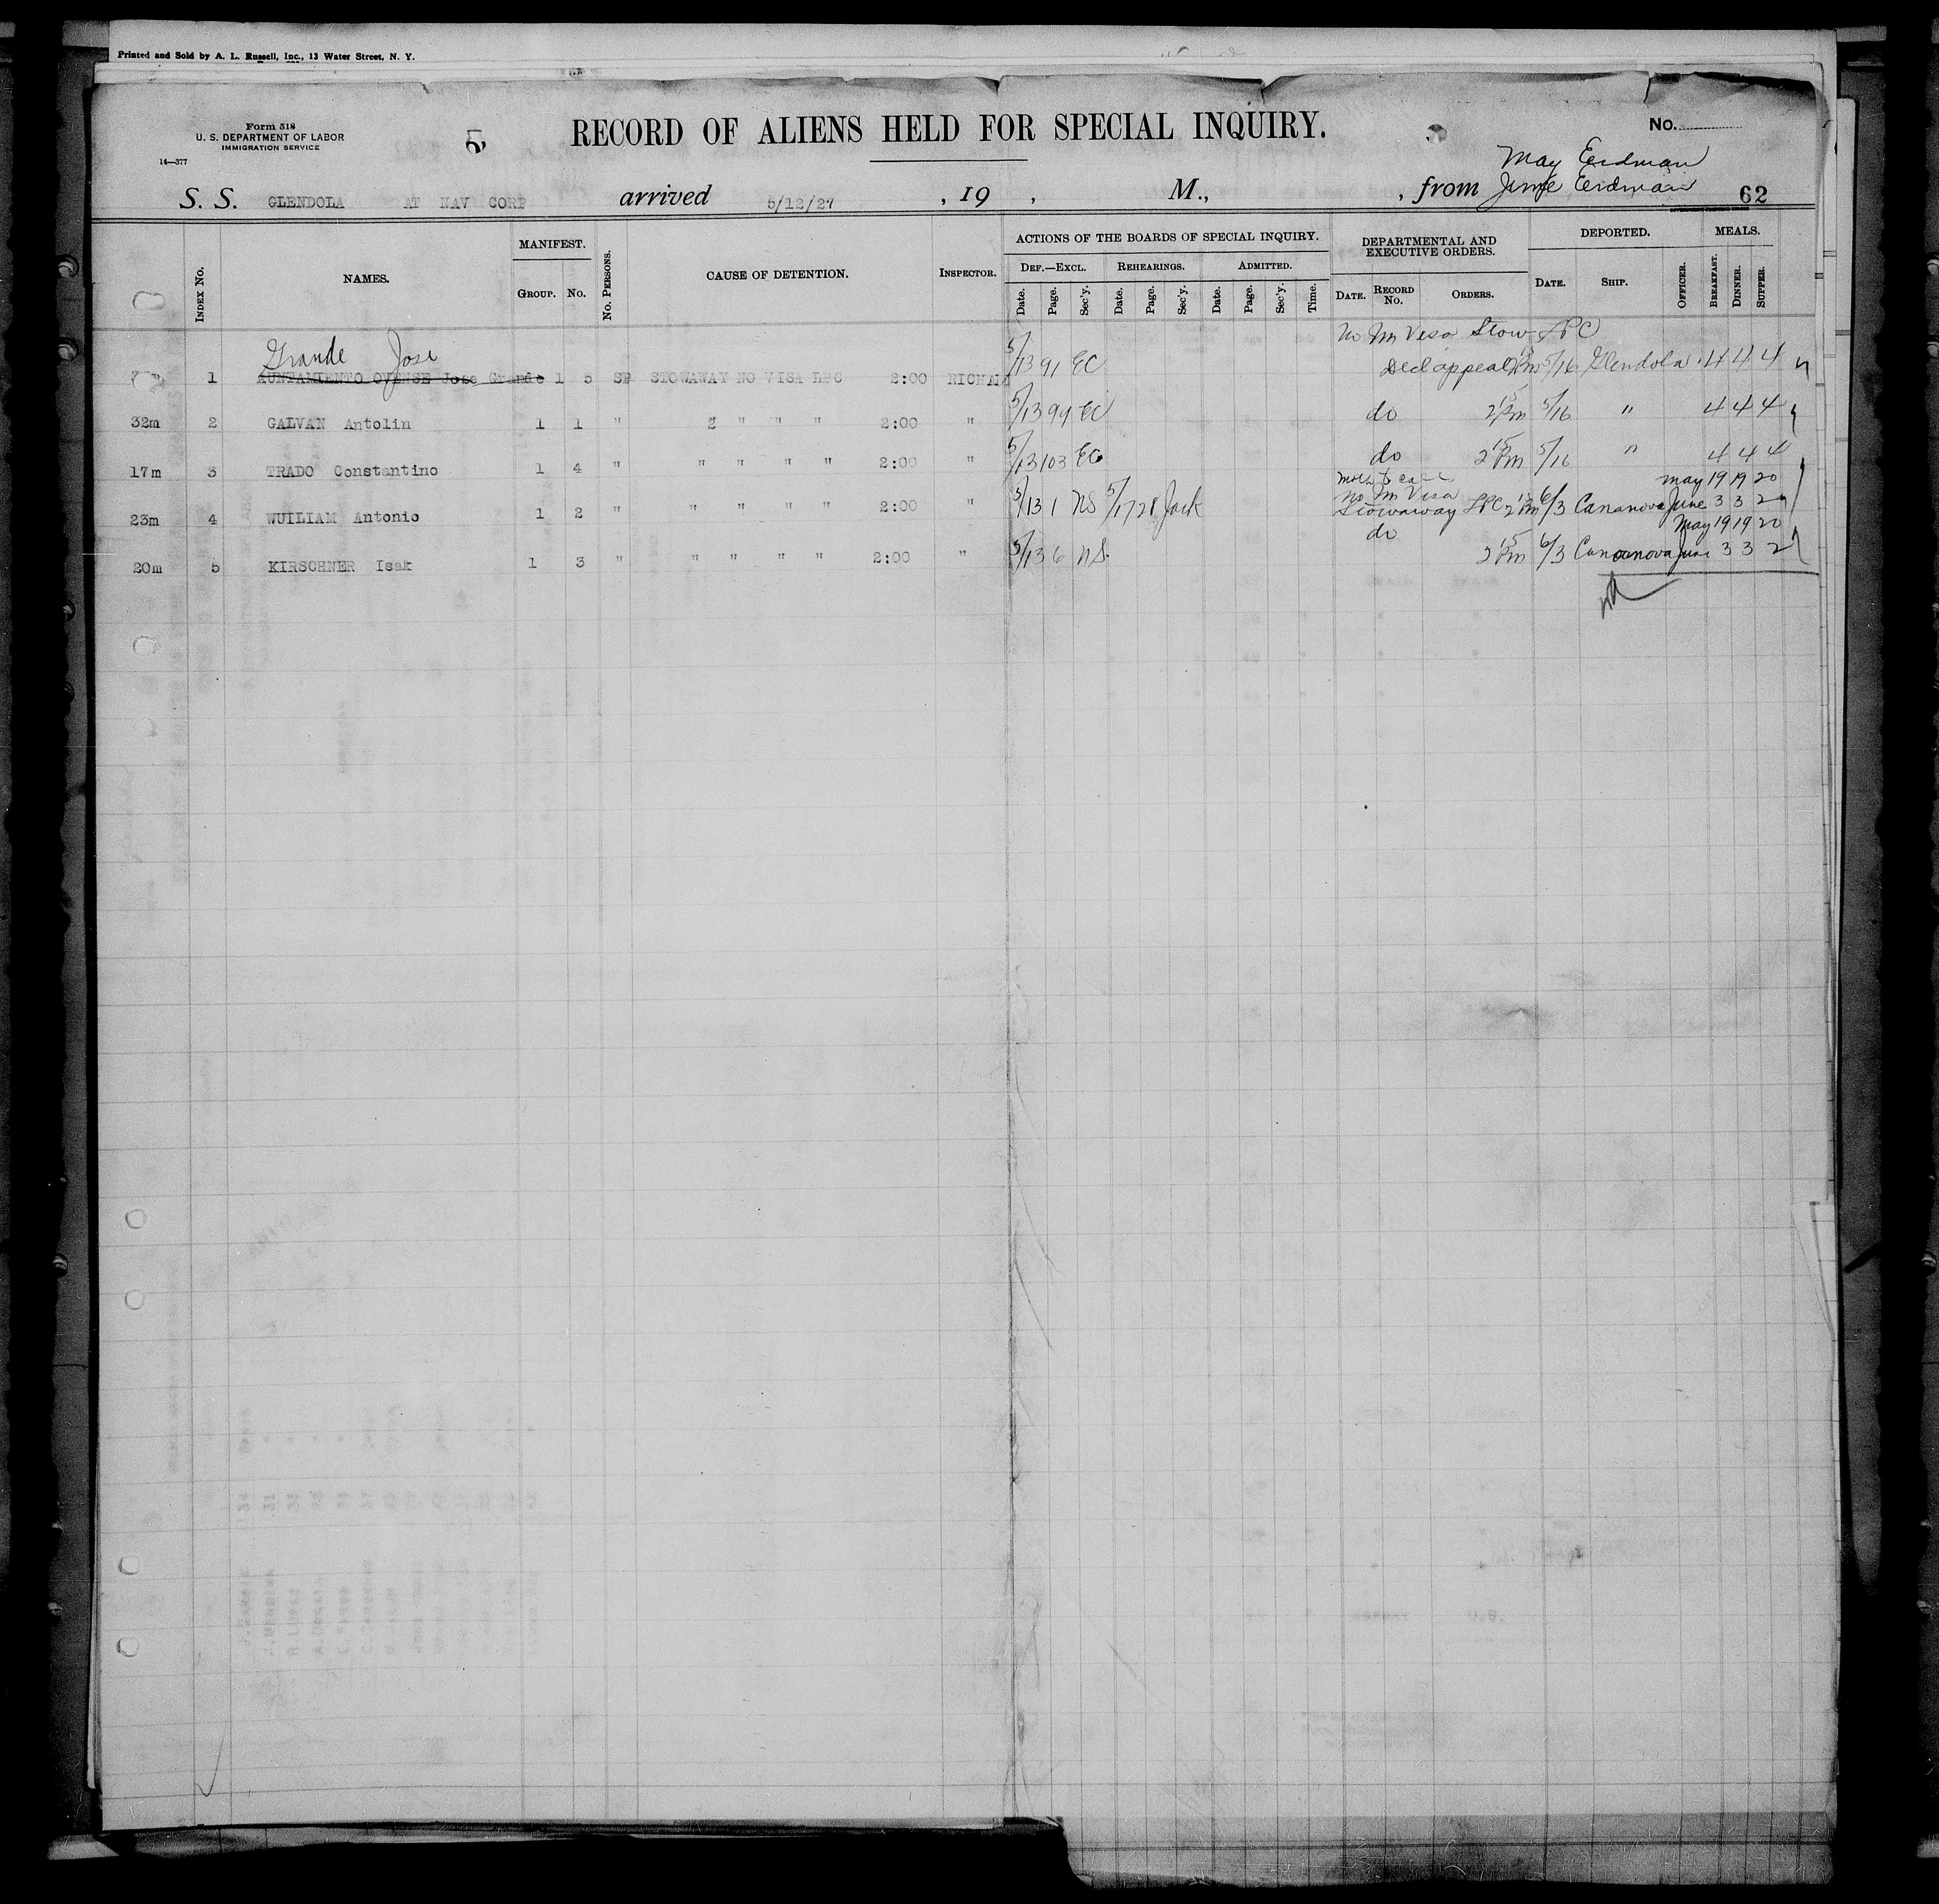 Printed and Sold by A. L. Russell, Inc., 13 Water Street, N. Y.
Form 518
U. S. DEPARTMENT OF LABOR
IMMIGRATION SERVICE
14—377
5
RECORD OF ALIENS HELD FOR SPECIAL INQUIRY.
No.
May Eerdman
S. S. GLENDOLA AT NAV CORP arrived 5/12/27, 19 , M., , from June Eerdman 62
INDEX No. NAMES. MANIFEST. GROUP. No. No. PERSONS. CAUSE OF DETENTION. INSPECTOR. ACTIONS OF THE BOARDS OF SPECIAL INQUIRY. DEF.—EXCL. Date. Page. Sec'y. REHEARINGS. Date. Page. Sec'y. ADMITTED. Date. Page. Sec'y. Time. DEPARTMENTAL AND EXECUTIVE ORDERS. DATE. RECORD No. ORDERS. DEPORTED. DATE. SHIP. OFFICER. MEALS. BREAKFAST. DINNER. SUPPER.
No Im Visa Stow LPC
Grande Jose
1 Jose Grande 1 5 SP STOWAWAY NO VISA LPC 2:00 RICHAR 5/13 91 EC Decl appeal 5/16 Glendola 4 4 4
32m 2 GALVAN Antolin 1 1 " " " " 2:00 " 5/13 94 EC do 2 15 Pm 5/16 " 4 4 4
17m 3 TRADO Constantino 1 4 " " " " " 2:00 " 5/13 103 EC do 2 15 Pm 5/16 " 4 4 4
May 19 19 20
No Im Visa
23m 4 WUILIAM Antonio 1 2 " " " " " 2:00 " 5/13 1 NS 5/17 Jack Stowaway LPC 2 15 Pm 6/3 Cananova June 3 3 2
do May 19 19 20
20m 5 KIRSCHNER Isak 1 3 " " " " " 2:00 " 5/13 6 NS. 2 15 Pm 6/3 Cananova June 3 3 2